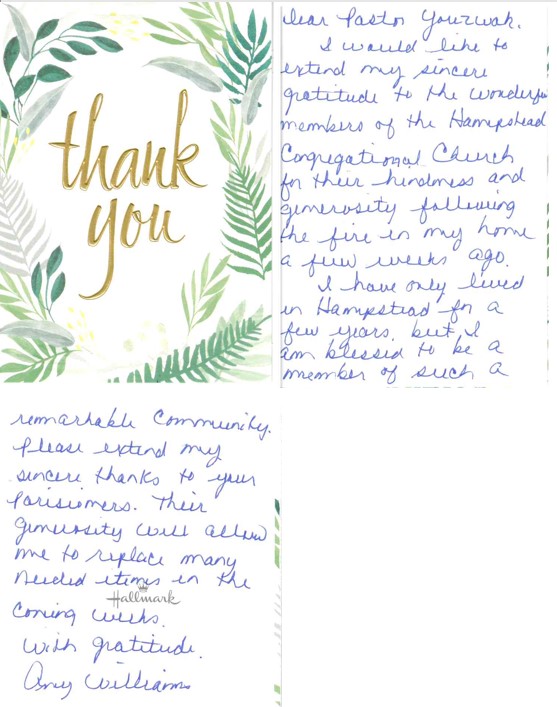 thank
you
Dear Pastor Yourwak,
I would like to
extend my sincere
gratitude to the wonderful
members of the Hampstead
Congregational Church
for their kindness and
generosity following
the fire in my home
a few weeks ago.
I have only lived
in Hampstead for a
few years, but I
am blessed to be a
member of such a
remarkable community.
Please extend my
sincere thanks to your
Parisioners. Their
generosity will allow
me to replace many
needed items in the
Hallmark
coming weeks.
With gratitude.
Amy Williams